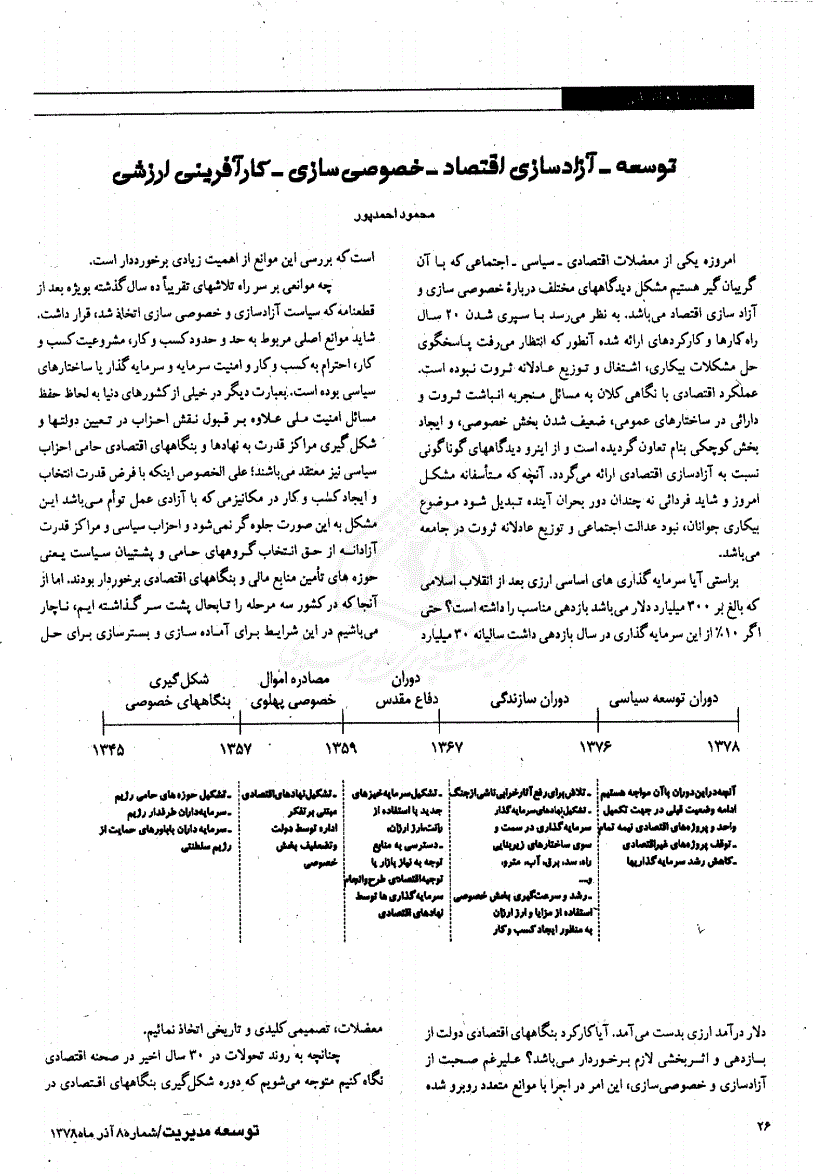 توسعه ـ آزادسازی اقتصاد ـ خصوصی‌سازی ـ کارآفرینی ارزشی
محمود احمدپور
امروزه یکی از معضلات اقتصادی ـ سیاسی ـ اجتماعی که با آن
گریبان گیر هستیم مشکل دیدگاههای مختلف دربارهٔ خصوصی سازی و
آزاد سازی اقتصاد می‌باشد. به نظر می‌رسد با سپری شدن ۲۰ سال
راه‌کارها و کارکردهای ارائه شده آنطور که انتظار می‌رفت پاسخگوی
حل مشکلات بیکاری، اشتغال و توزیع عادلانه ثروت نبوده است.
عملکرد اقتصادی با نگاهی کلان به مسائل منجربه انباشت ثروت و
دارائی در ساختارهای عمومی، ضعیف شدن بخش خصوصی، و ایجاد
بخش کوچکی بنام تعاون گردیده است و از اینرو دیدگاههای گوناگونی
نسبت به آزادسازی اقتصادی ارائه می‌گردد. آنچه که متأسفانه مشکل
امروز و شاید فردائی نه چندان دور بحران آینده تبدیل شود موضوع
بیکاری جوانان، نبود عدالت اجتماعی و توزیع عادلانه ثروت در جامعه
می‌باشد.
براستی آیا سرمایه گذاری های اساسی ارزی بعد از انقلاب اسلامی
که بالغ بر ۳۰۰ میلیارد دلار می‌باشد بازدهی مناسب را داشته است؟ حتی
اگر ۱۰٪ از این سرمایه گذاری در سال بازدهی داشت سالیانه ۳۰ میلیارد
است که بررسی این موانع از اهمیت زیادی برخورددار است.
چه موانعی بر سر راه تلاشهای تقریباً ده سال گذشته بویژه بعد از
قطعنامه که سیاست آزادسازی و خصوصی سازی اتخاذ شد، قرار داشت.
شاید موانع اصلی مربوط به حد و حدود کسب و کار، مشروعیت کسب و
کار، احترام به کسب و کار و امنیت سرمایه و سرمایه گذار یا ساختارهای
سیاسی بوده است. بعبارت دیگر در خیلی از کشورهای دنیا به لحاظ حفظ
مسائل امنیت ملی علاوه بر قبول نقش احزاب در تعیین دولتها و
شکل گیری مراکز قدرت به نهادها و بنگاههای اقتصادی حامی احزاب
سیاسی نیز معتقد می‌باشند؛ علی الخصوص اینکه با فرض قدرت انتخاب
و ایجاد کسب و کار در مکانیزمی که با آزادی عمل توأم می‌باشد این
مشکل به این صورت جلوه گر نمی‌شود و احزاب سیاسی و مراکز قدرت
آزادانه از حق انتخاب گروههای حامی و پشتیبان سیاست یعنی
حوزه های تأمین منابع مالی و بنگاههای اقتصادی برخوردار بودند. اما از
آنجا که در کشور سه مرحله را تابحال پشت سر گذاشته ایم، ناچار
می‌باشیم در این شرایط برای آماده سازی و بسترسازی برای حل
دوران توسعه سیاسی
دوران سازندگی
دوران
دفاع مقدس
مصادره اموال
خصوصی پهلوی
شکل گیری
بنگاههای خصوصی
۱۳۷۸ ۱۳۷۶ ۱۳۶۷ ۱۳۵۹ ۱۳۵۷ ۱۳۴۵
آنچه دراین دوران با آن مواجه هستیم
ادامه وضعیت قبلی در جهت تکمیل
واحد و پروژه‌های اقتصادی نیمه تمام
ـ توقف پروژه‌های غیراقتصادی
ـ کاهش رشد سرمایه گذاریها
ـ تلاش برای رفع آثار خرابی ناشی ازجنگ
ـ تشکیل نهادهای سرمایه‌گذار
سرمایه‌گذاری در سمت و
سوی ساختارهای زیربنایی
راه، سد، برق، آب، مترو،
و...
ـ رشد و سرعت‌گیری بخش خصوصی
استفاده از مزایا و ارز ارزان
به منظور ایجاد کسب و کار
ـ تشکیل سرمایه‌خیزهای
جدید با استفاده از
رانت‌ارز ارزان،
ـ دسترسی به منابع
توجه به نیاز بازار یا
توجیه اقتصادی طرح وانجام
سرمایه گذاری ها توسط
نهادهای اقتصادی
ـ تشکیل نهادهای اقتصادی
مبتنی بر تفکر
اداره توسط دولت
وتضعیف بخش
خصوصی
ـ تشکیل حوزه های حامی رژیم
ـ سرمایه‌داران طرفدار رژیم
ـ سرمایه داران باباورهای حمایت از
رژیم سلطنتی
دلار درآمد ارزی بدست می‌آمد. آیا کارکرد بنگاههای اقتصادی دولت از
بازدهی و اثربخشی لازم برخوردار می‌باشد؟ علیرغم صحبت از
آزادسازی و خصوصی‌سازی، این امر در اجرا با موانع متعدد روبرو شده
معضلات، تصمیمی کلیدی و تاریخی اتخاذ نمائیم.
چنانچه به روند تحولات در ۳۰ سال اخیر در صحنه اقتصادی
نگاه کنیم متوجه می‌شویم که دوره شکل‌گیری بنگاههای اقتصادی در
۲۶
توسعه مدیریت/شماره۸ آذر ماه۱۳۷۸